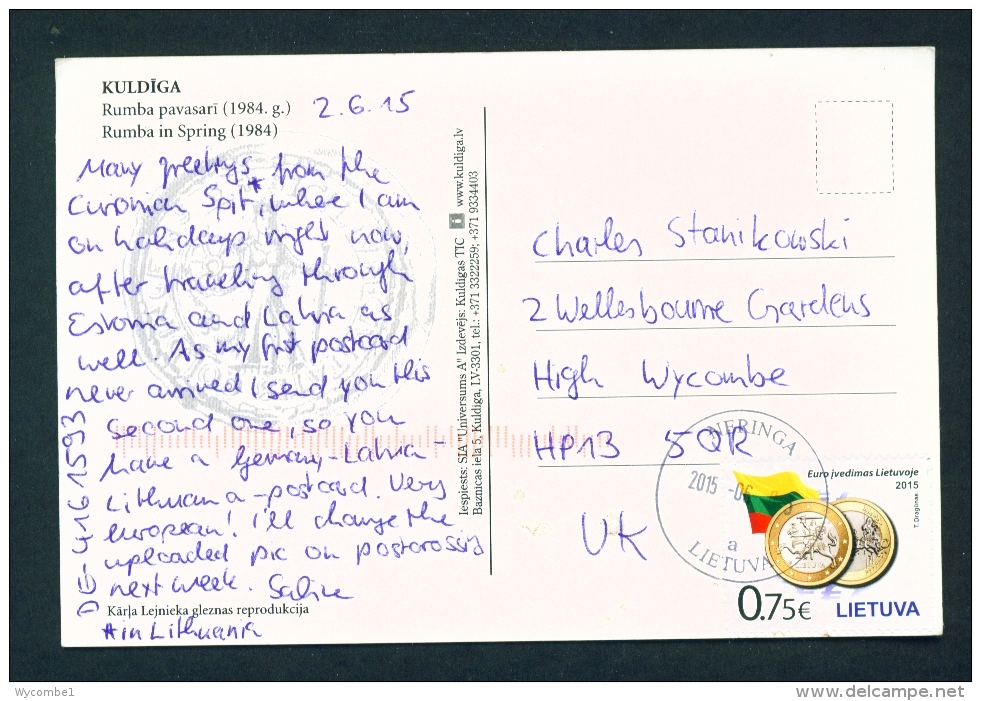 KULDĪGA
Rumba pavasarī (1984. g.)
Rumba in Spring (1984)
2.6.15
Many greetings from the
Curonian Spit*, where I am
on holidays right now,
after traveling through
Estonia and Latvia as
well. As my first postcard
never arrived I send you this
second one, so you
have a Germany-Latvia-
Lithuania-postcard. Very
european! I'll change the
uploaded pic on postcrossing
next week. Sabine
Kārļa Lejnieka gleznas reprodukcija
*in Lithuania
DE-4161593
Iespiests: SIA "Universums A" Izdevējs: Kuldīgas TIC i www.kuldiga.lv
Baznīcas iela 5, Kuldīga, LV-3301, tel.: +371 3322259; +371 9334403
Charles Stanikowski
2 Wellesbourne Gardens
High Wycombe
HP13 5QR
UK
NERINGA
2015-06
a
LIETUVA
Euro įvedimas Lietuvoje
2015
T. Dragūnas
0.75€ LIETUVA
Wycombe1
www.delcampe.net